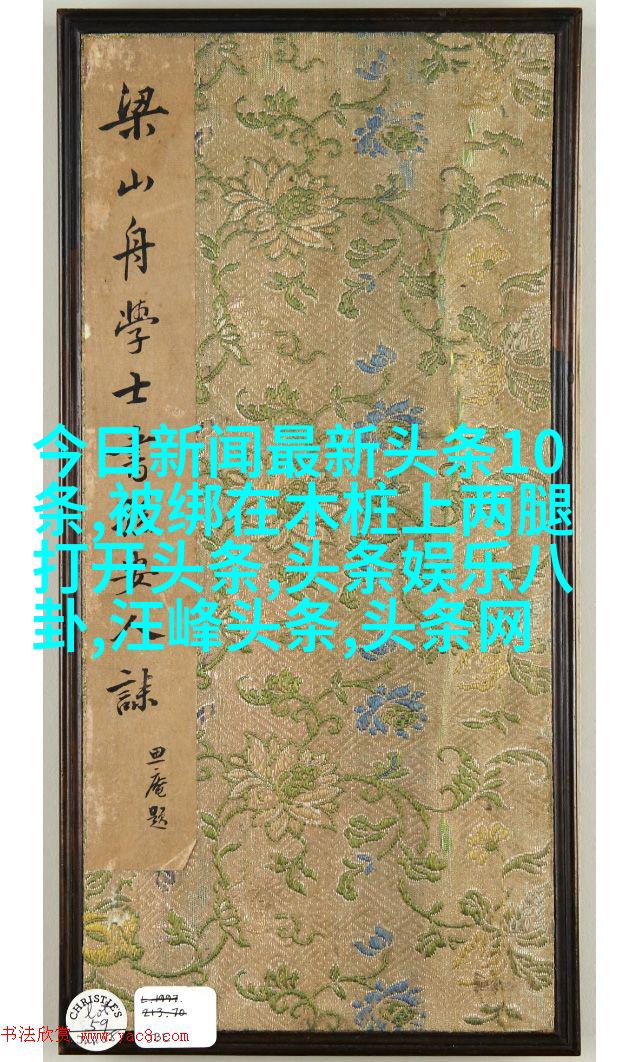 梁山舟學士書
安人誄
思庵題
今日新闻最新头条10
条,被绑在木桩上两腿
打开头条,头条娱乐八
卦,汪峰头条,头条网
CHRISTIE'S
Lot
59
L.1997.
213.70
书法欣赏 www.yac8.com